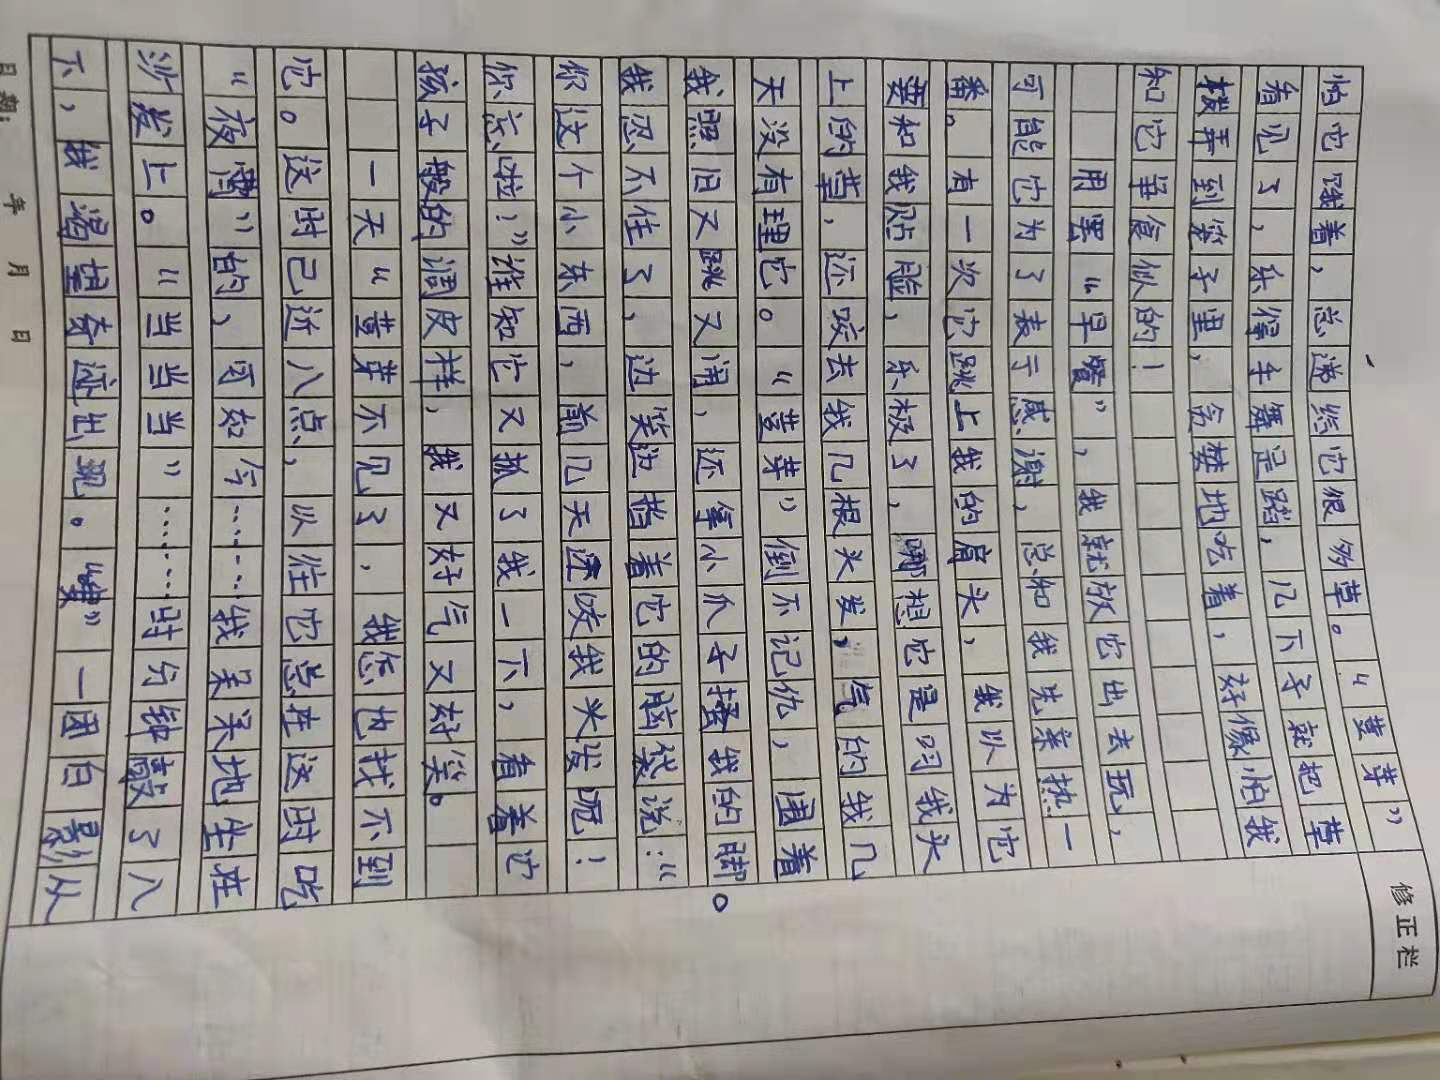 修正栏
怕它饿着，总递给它很多草。“黄芽”
看见了，乐得手舞足蹈，几下子就把草
拨弄到笼子里，贪婪地吃着，好像怕我
和它争食似的！
用罢“早餐”，我就放它出去玩，
可能它为了表示感谢，总和我先亲热一
番。有一次它跳上我的肩头，我以为它
要和我贴脸，乐极了，哪想它是叼我头
上的草，还咬去我几根头发，气的我几
天没有理它。“黄芽”倒不记仇，围着
我照旧又跳又闹，还拿小爪子搔我的脚。
我忍不住了，边笑边指着它的脑袋说：“
你这个小东西，前几天还咬我头发呢！
你忘啦！”谁知它又抓了我一下，看着它
孩子般的调皮样，我又好气又好笑。
一天“黄芽不见了，我怎也找不到
它。这时已近八点，以往它总在这时吃
“夜宵”的，可如今……我呆呆地坐在
沙发上。“当当当”……时分钟敲了八
下，我渴望奇迹出现。“嗖”一团白影从
日期： 年 月 日